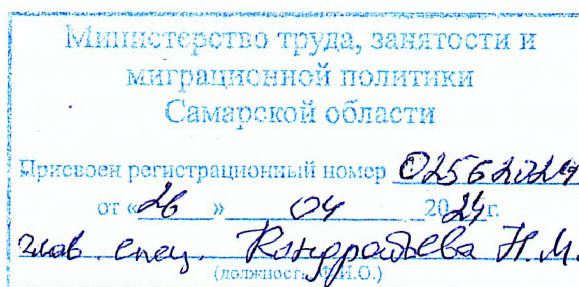 Министерство труда, занятости и
миграционной политики
Самарской области
Присвоен регистрационный номер 02562024
от «26» 04 2024г.
глав. спец. Кондратьева Н.М.
(должность, Ф.И.О.)